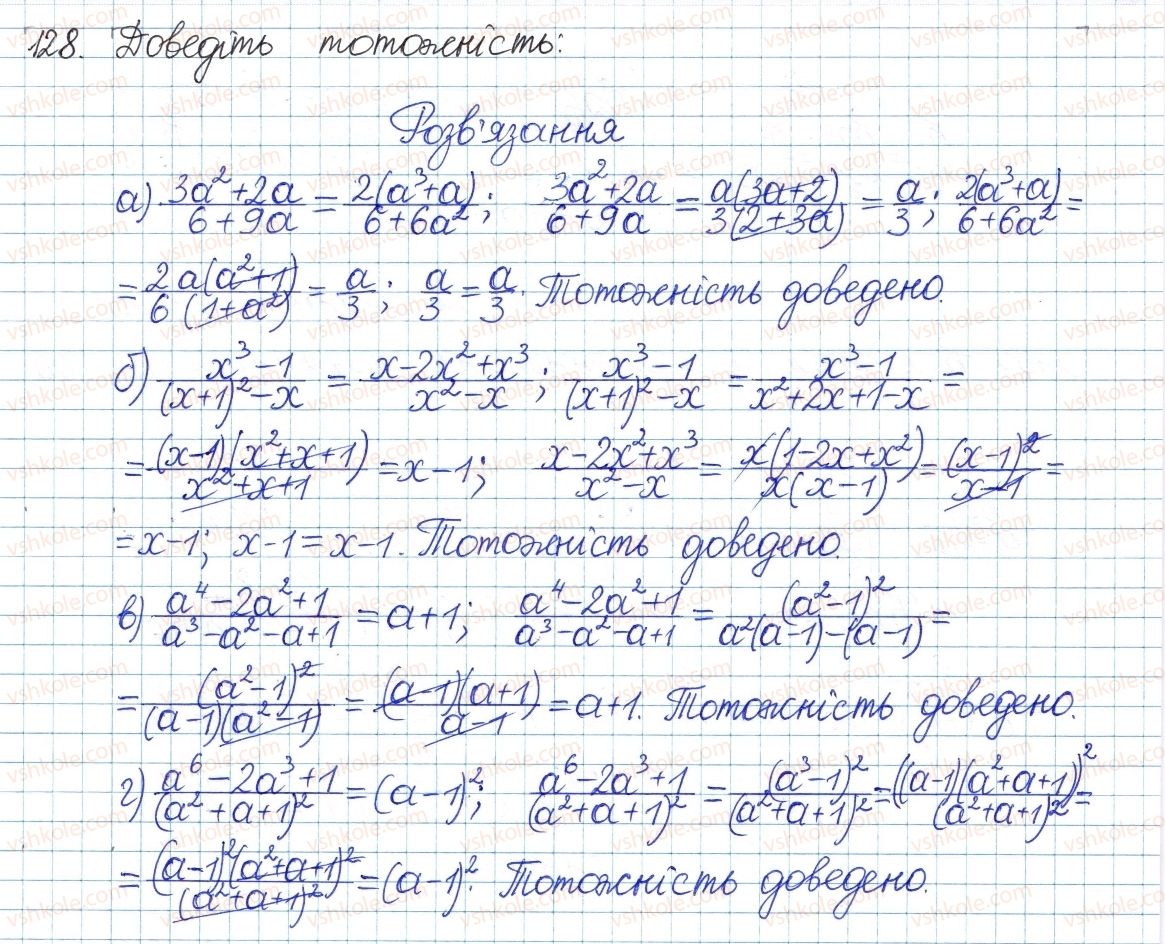 128. Доведіть тотожність:
Розв'язання
а) (3a²+2a)/(6+9a) = 2(a³+a)/(6+6a²); (3a²+2a)/(6+9a) = a(3a+2)/3(2+3a) = a/3; 2(a³+a)/(6+6a²) =
= 2a(a²+1)/6(1+a²) = a/3; a/3 = a/3. Тотожність доведено.
б) (x³-1)/((x+1)²-x) = (x-2x²+x³)/(x²-x); (x³-1)/((x+1)²-x) = (x³-1)/(x²+2x+1-x) =
= (x-1)(x²+x+1)/(x²+x+1) = x-1; (x-2x²+x³)/(x²-x) = x(1-2x+x²)/x(x-1) = (x-1)²/(x-1) =
= x-1; x-1 = x-1. Тотожність доведено.
в) (a⁴-2a²+1)/(a³-a²-a+1) = a+1; (a⁴-2a²+1)/(a³-a²-a+1) = (a²-1)²/(a²(a-1)-(a-1)) =
= (a²-1)²/(a-1)(a²-1) = (a-1)(a+1)/(a-1) = a+1. Тотожність доведено.
г) (a⁶-2a³+1)/(a²+a+1)² = (a-1)²; (a⁶-2a³+1)/(a²+a+1)² = (a³-1)²/(a²+a+1)² = ((a-1)(a²+a+1))²/(a²+a+1)² =
= (a-1)²(a²+a+1)²/(a²+a+1)² = (a-1)². Тотожність доведено.